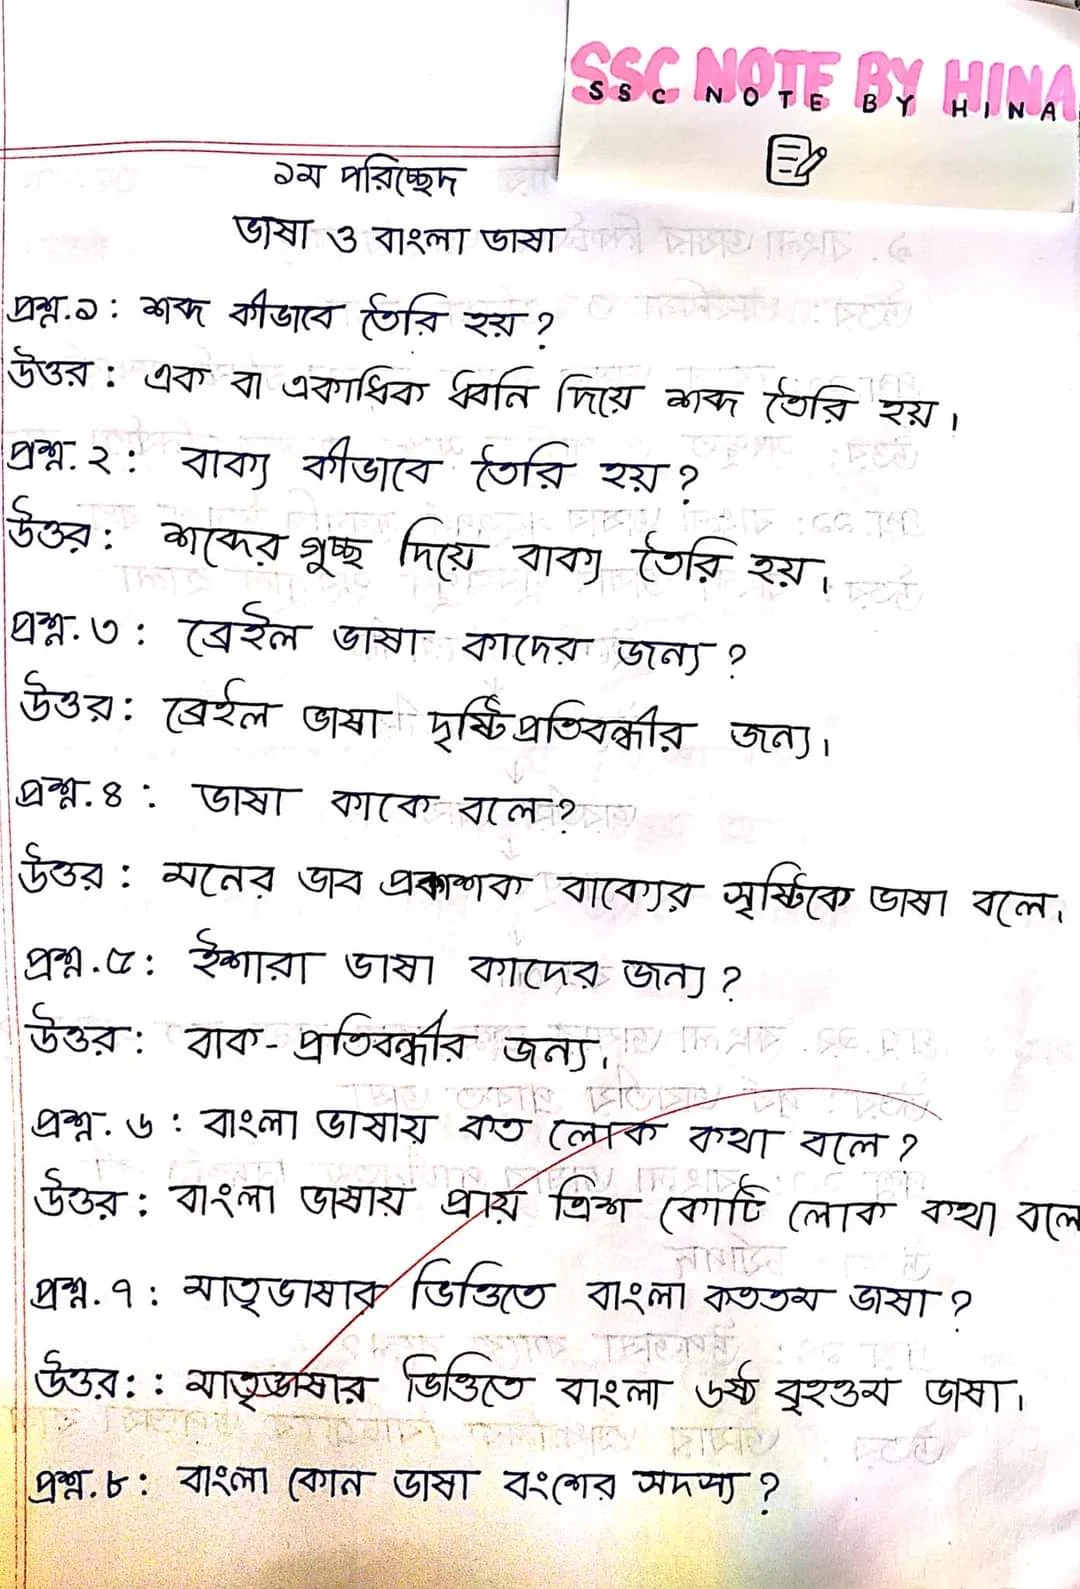 SSC NOTE BY HINA
SSC NOTE BY HINA
১ম পরিচ্ছেদ
ভাষা ও বাংলা ভাষা
প্রশ্ন.১: শব্দ কীভাবে তৈরি হয়?
উত্তর: এক বা একাধিক ধ্বনি দিয়ে শব্দ তৈরি হয়।
প্রশ্ন.২: বাক্য কীভাবে তৈরি হয়?
উত্তর: শব্দের গুচ্ছ দিয়ে বাক্য তৈরি হয়।
প্রশ্ন.৩: ব্রেইল ভাষা কাদের জন্য?
উত্তর: ব্রেইল ভাষা দৃষ্টিপ্রতিবন্ধীর জন্য।
প্রশ্ন.৪: ভাষা কাকে বলে?
উত্তর: মনের ভাব প্রকাশক বাক্যের সৃষ্টিকে ভাষা বলে।
প্রশ্ন.৫: ইশারা ভাষা কাদের জন্য?
উত্তর: বাক-প্রতিবন্ধীর জন্য।
প্রশ্ন.৬: বাংলা ভাষায় কত লোক কথা বলে?
উত্তর: বাংলা ভাষায় প্রায় ত্রিশ কোটি লোক কথা বলে
প্রশ্ন.৭: মাতৃভাষার ভিত্তিতে বাংলা কততম ভাষা?
উত্তর:: মাতৃভাষার ভিত্তিতে বাংলা ৬ষ্ঠ বৃহত্তম ভাষা।
প্রশ্ন.৮: বাংলা কোন ভাষা বংশের সদস্য?